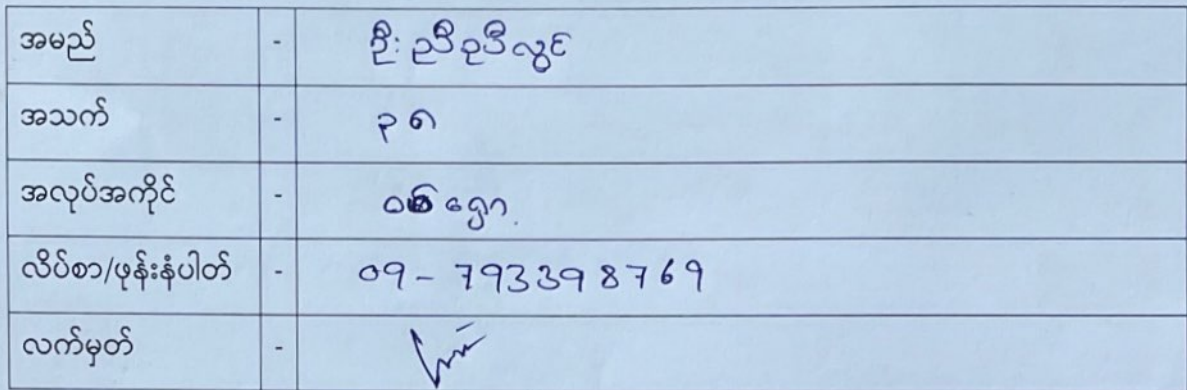 အမည် - ဦးညီဉီလွင်
အသက် - ၃၈
အလုပ်အကိုင် - ဝါရှော
လိပ်စာ/ဖုန်းနံပါတ် - 09-793398769
လက်မှတ် -